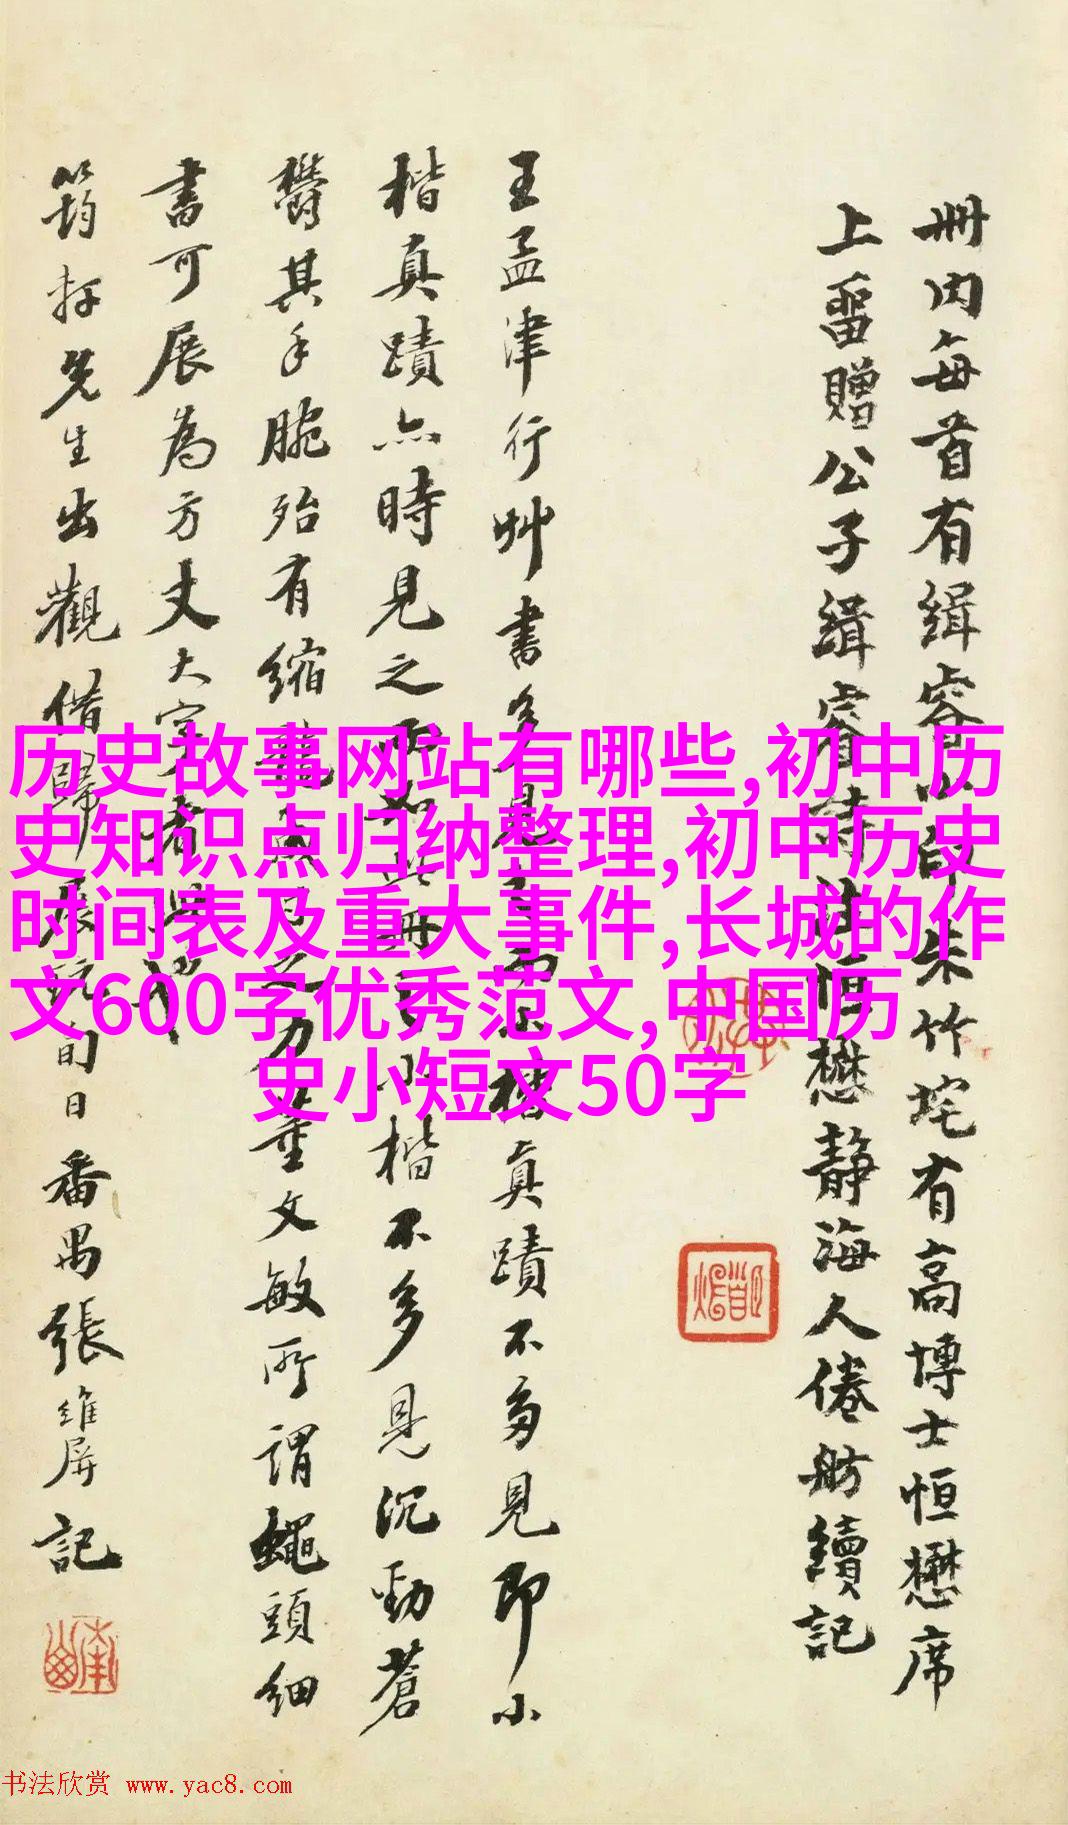 册内每首有缉
上
留贈公子缉
懋靜海人倦舫續記
朱竹垞有高博士恒懋席
王孟津行艸書多見
楷真蹟不多見即小
楷真蹟亦時見之
小楷不多見沉勁蒼
鬱其手腕殆有縮
董文敏所謂蠅頭細
書可展為方丈大字
筠
先生出觀借歸展玩旬日番禺張維屏記
历史故事网站有哪些,初中历
史知识点归纳整理,初中历史
时间表及重大事件,长城的作
文600字优秀范文,中国历
史小短文50字
书法欣赏 www.yac8.com